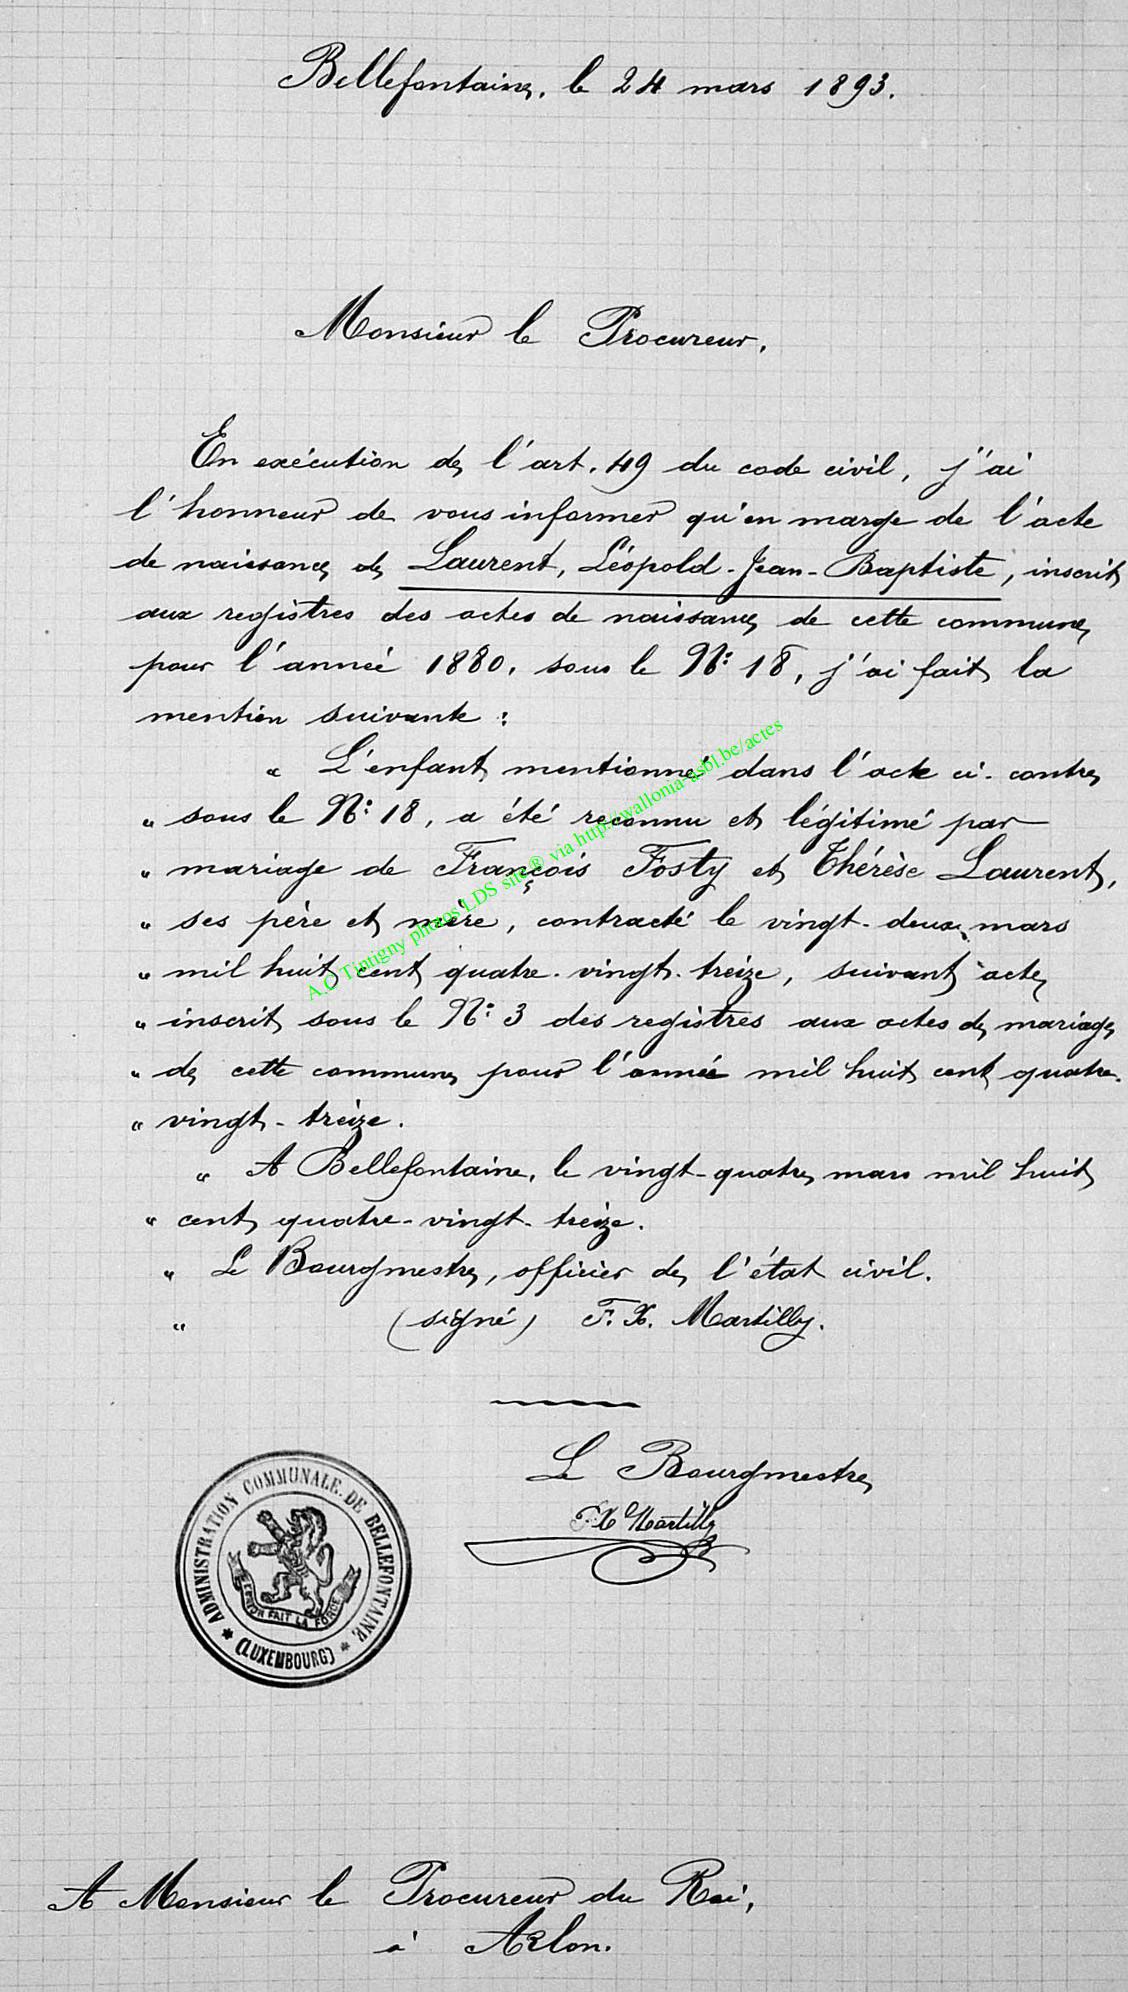 Bellefontaine, le 24 mars 1893.
Monsieur le Procureur,
En exécution de l'art. 49 du code civil, j'ai
l'honneur de vous informer qu'en marge de l'acte
de naissance de Laurent, Léopold-Jean-Baptiste, inscrit
aux registres des actes de naissance de cette commune
pour l'année 1880, sous le N° 18, j'ai fait la
mention suivante :
" L'enfant mentionné dans l'acte ci-contre
" sous le N° 18, a été reconnu et légitimé par
" mariage de François Fosty et Thérèse Laurent,
" ses père et mère, contracté le vingt-deux mars
" mil huit cent quatre-vingt-treize, suivant acte
" inscrit sous le N° 3 des registres aux actes de mariage
" de cette commune pour l'année mil huit cent quatre-
" vingt-treize.
" A Bellefontaine, le vingt-quatre mars mil huit
" cent quatre-vingt-treize.
" Le Bourgmestre, officier de l'état civil.
" (signé) F. X. Martilly.
Le Bourgmestre
F X Martilly
ADMINISTRATION COMMUNALE DE BELLEFONTAINE
L'UNION FAIT LA FORCE
* (LUXEMBOURG) *
A Monsieur le Procureur du Roi,
à Arlon.
A.C Tintigny photos LDS site® via http://wallonia-asbl.be/actes